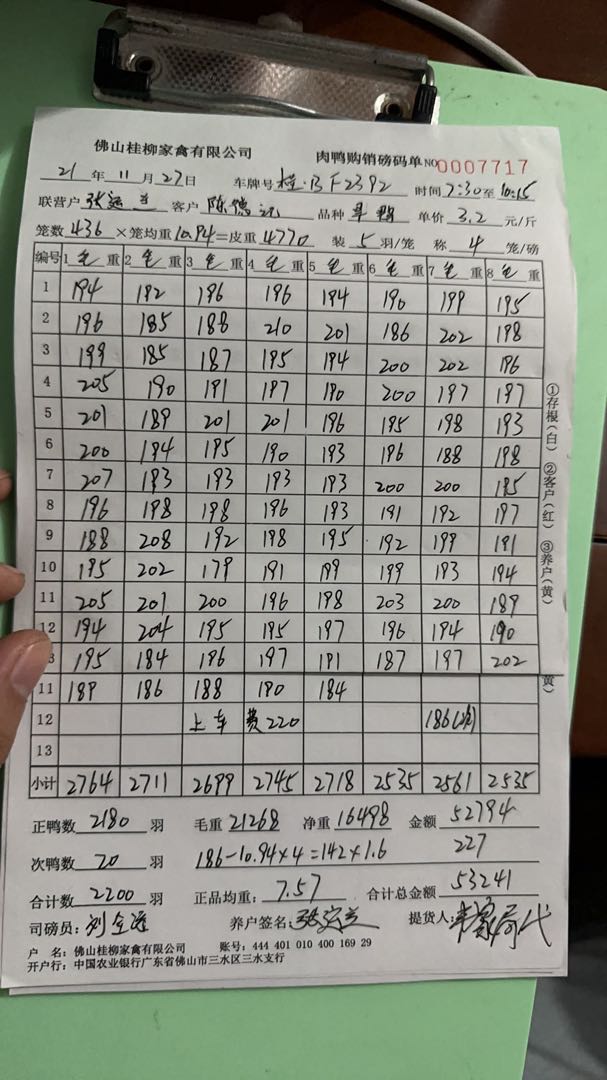 佛山桂柳家禽有限公司 肉鸭购销磅码单 NO 0007717
21 年 11 月 27 日 车牌号 桂·BF2392 时间 7:30 至 10:15
联营户 张运兰 客户 陈德记 品种 单价 3.2 元/斤
笼数 436 ×笼均重 10.94 =皮重 4770 装 5 羽/笼 称 4 笼/磅
编号 1 毛 重 2 毛 重 3 毛 重 4 毛 重 5 毛 重 6 毛 重 7 毛 重 8 毛 重
1 194 192 196 196 194 190 199 195
2 196 185 188 210 201 186 202 198
3 199 185 187 195 194 200 202 196
4 205 190 191 197 190 200 197 197
5 201 189 201 201 196 195 198 193
6 200 194 195 190 193 196 188 198
7 207 193 193 193 193 200 200 195
8 196 198 198 196 193 191 192 197
9 188 208 192 198 195 192 199 191
10 195 202 179 191 199 199 193 194
11 205 201 200 196 198 203 200 189
12 194 204 195 195 197 196 194 190
3 195 184 196 197 191 187 197 202
11 189 186 188 190 184
12 上车 费220 186(次)
13
小计 2764 2711 2699 2745 2718 2535 2561 2535
①存根(白) ②客户(红) ③养户(黄)
黄)
正鸭数 2180 羽 毛重 21268 净重 16498 金额 52794
次鸭数 20 羽 186-10.94×4=142×1.6 227
合计数 2200 羽 正品均重: 7.57 合计总金额 53241
司磅员: 养户签名: 张运兰 提货人:
户 名: 佛山桂柳家禽有限公司 账号: 444 401 010 400 169 29
开户行: 中国农业银行广东省佛山市三水区三水支行